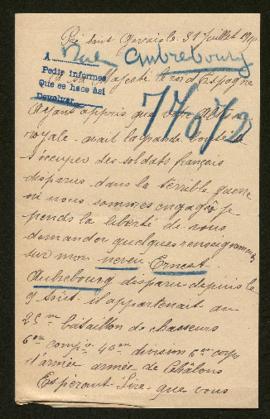 Pré Saint Gervais le 31 Juillet
A sa Majesté le roi d'Espagne
A
Pedir informes
Que se hace asi
Devolver
Rue
Aubrebourg
77672
Ayant appris que votre Altesse
royale avait la grande bonté de
s'occuper des soldats français
disparus dans la terrible guerre
où nous sommes engagés je
prends la liberté de vous
demander quelques renseignements
sur mon neveu Ernest
Aubrebourg disparu depuis le
9 Août il appartenait au
25em bataillon de chasseurs
6em compie 40em division 6em corps
d'armée armée de Châlons
Espérant Sire que vous